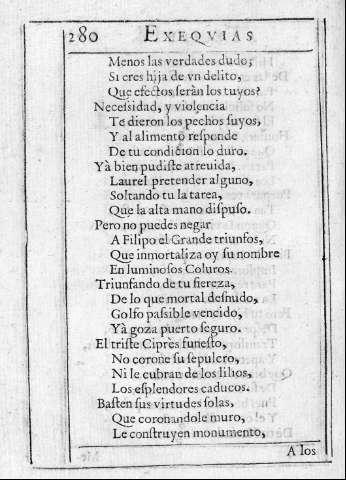 280 EXEQVIAS
Menos las verdades dudo;
Si eres hija de vn delito,
Que efectos seràn los tuyos?
Necessidad, y violencia
Te dieron los pechos suyos,
Y al alimento responde
De tu condicion lo duro.
Yà bien pudiste atreuida,
Laurel pretender alguno,
Soltando tu la tarea,
Que la alta mano dispuso.
Pero no puedes negar
A Filipo el Grande triunfos,
Que inmortaliza oy su nombre
En luminosos Coluros.
Triunfando de tu fiereza,
De lo que mortal desnudo,
Golfo passible vencido,
Yà goza puerto seguro.
El triste Ciprès funesto,
No corone su sepulcro,
Ni le cubran de los lilios,
Los esplendores caducos.
Basten sus virtudes solas,
Que coronandole muro,
Le construyen monumento,
A los